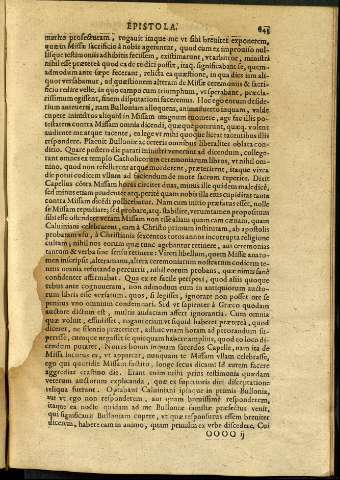 EPISTOLA. 845
multo profecturam, rogauit itaque me vt sibi breuiter exponerem,
quæ in Missæ sacrificio à nobis agerentur, quod cum ex improuiso nul-
lisque testimoniis adhibitis fecissem, existimarunt,
nihil esse præterea quod ea de re dici posset, itaq. significabant se, quem-
admodum ante sæpe fecerant, relicta ea quæstione, in qua dies iam ali-
quot versabamur, ad quæstionem alteram de Missæ ceremoniis & sacri-
ficio redire velle, in quo campo cum triumphum, vt sperabant, præcla-
rissimum egissent, finem disputationi facturos. Hoc ego eorum deside-
rium auertens, nam Bulloniam alloquens, animaduerto inquam, valde
cupere ministros aliquid in Missam
potestatem contra Missam omnia dicendi, quæque, volent
audiente me atque tacente, ea lege vt mihi quoque liceat tacentibus illis
respondere. Placuit Bulloniæ ac ceteris omnibus liberalitas oblata con-
ditio. Quare postero die parati ministri venerunt ad dicendum, colleg-
rant omnes ex templo Catholicorum ceremoniarum libros, vt nihil om-
nino, quod non refellerent atque morderent, præterirent, itaque vix ea
die potui codicem vllum ad faciendum de more sacrum reperire. Dixit
Capellus contra Missam horas circiter duas, minus ille quidem maledicè,
sed minus etiam prudenter acq. peritè quam nobis illa eius cupiditas tanta
contra Missam dicendi pollicebatur. Nam cum initio præfatus esset, nolle
se Missam repudiare, sed probare, acq. stabilire, verumtamen propositum
sibi esse ostendere veram Missam non esse aliam quam cœnam, quam
Caluiniani celebrarent, eam à Christo primum institutam, ab apostolis
probatam esse, à Christianis sexcentos totos annos incorrupta religione
cultam, nihil nos eorum quæ tunc agebantur retinere, aut ceremonias
tantum & verba sine sensu retinere: Vtrem libellum, quem Missæ anato-
men inscripsit, alteram manu, altera ceremoniarum nostrarum codicem te-
nens omnia refutando percurrit, nihil eorum probans, quæ nimia sanè
confidentia affirmabat. Quæ ex re facile perspexi, quod alias quoque
rebus ante cognoueram, non admodum eum in antiquorum aucto-
rum libris esse versatum: quos, si legisset, ignorare non posset ore se
penitus vno omnium condemnari. Sed vt sapienter à Græco quodam
auctore dictum est, multis audaciam affert ignorantia. Cum omnia
quæ voluit, effudisset, rogauerunt vt siquid haberet præterea, quod
diceret, ne silentio præteriret, adhuc vnam horam ad perorandum su-
peresse, cumque negasset se quicquam habere amplius, quod eo loco di-
cendum putaret, ei
Missa locutus es, vt appareat, nunquam te Missam vllam celebrasse,
ego qui quotidie Missam facio, longe secus dicendi id autem facere
aggrediar crastino die. Erant enim mihi prius testimonia quædam
veterum auctorum explicanda, quæ ex superioris diei disceptatione
reliqua fuerant. Optabant Caluiniani ipsaque in primis Bullonia,
aut vt ego non responderem, aut quam breuissimè responderem,
itaque ea nocte quidam ad me Bulloniæ familiæ præfectus venit,
qui significauit Bulloniam cupere, vt quæ responsurus essem breuiter
dicerem, habere eam in animo, quam primùm ex vrbe discedere. Cui
OOOO ij